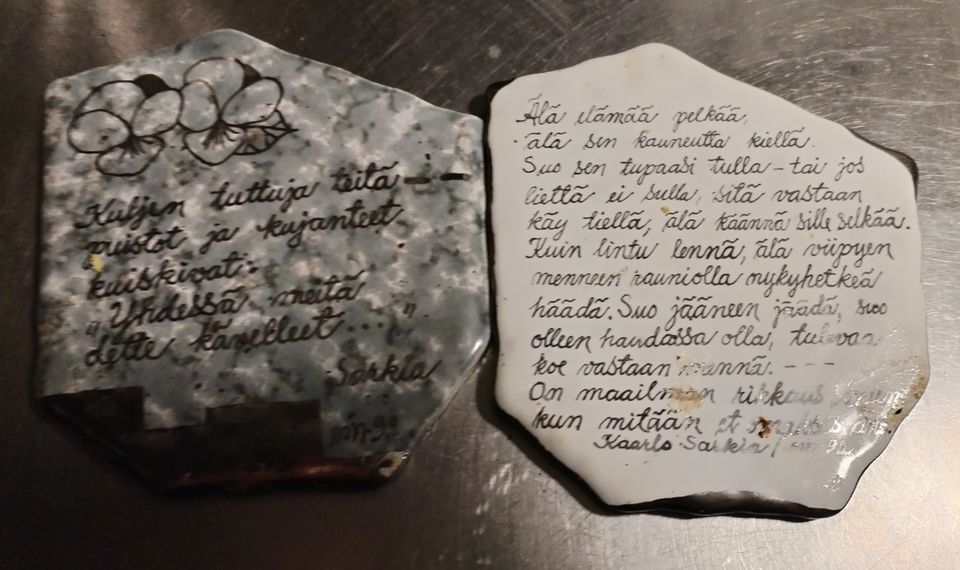 Kuljen tuttuja teitä —
muistot ja kujanteet
kuiskivat:
"Yhdessä meitä
dette kävelleet... "
Sarkia
Älä elämää pelkää,
älä sen kauneutta kiellä.
Suo sen tupaasi tulla – tai jos
liettä ei sulla, sitä vastaan
käy tiellä, älä käännä sille selkää.
Kuin lintu lennä, älä viipyen
menneen rauniolla nykyhetkeä
häädä. Suo jääneen jäädä, suo
olleen haudassa olla, tulevaa
koe vastaan mennä. – – –
On maailman rikkaus sinun
kun mitään et omaksesi ano.
Kaarlo Sarkia /